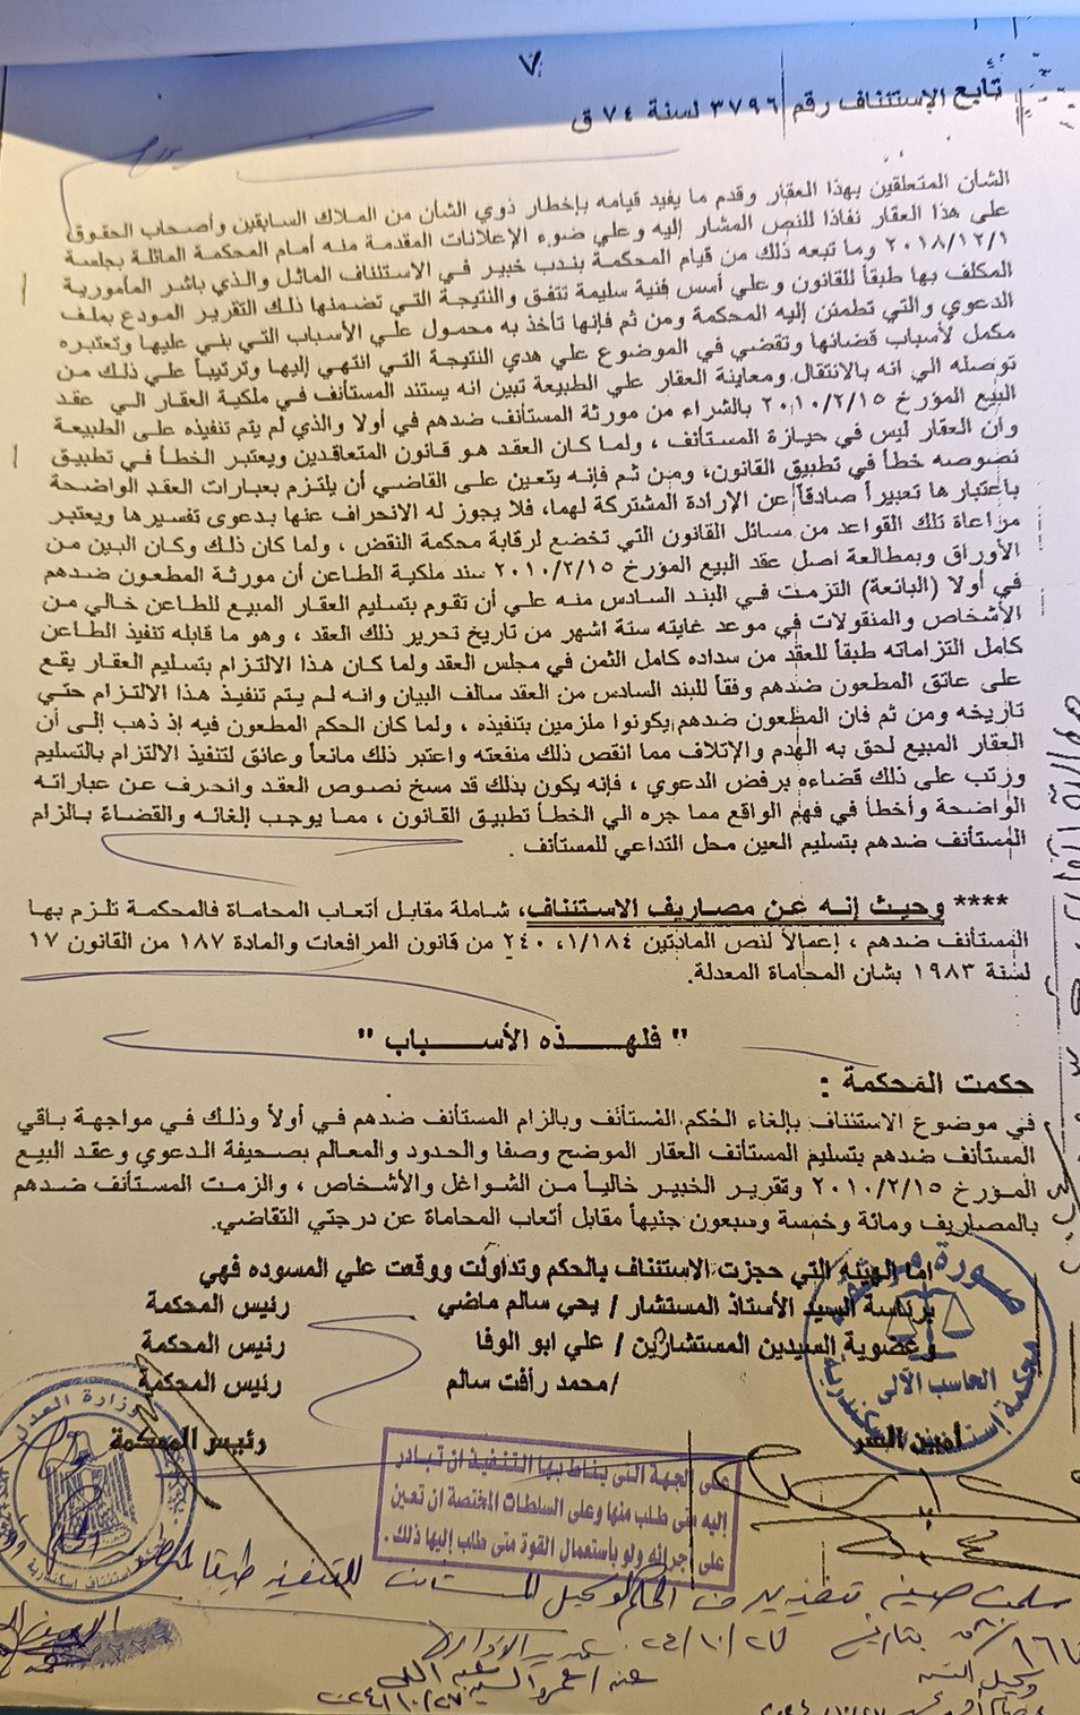 ٧
تابع الإستئناف رقم ٣٧٩٦ لسنة ٧٤ ق
الشأن المتعلقين بهذا العقار وقدم ما يفيد قيامه بإخطار ذوي الشأن من الملاك السابقين وأصحاب الحقوق
على هذا العقار نفاذا للنص المشار إليه وعلي ضوء الإعلانات المقدمة منه أمام المحكمة الماثلة بجلسة
٢٠١٨/١٢/١ وما تبعه ذلك من قيام المحكمة بندب خبير في الاستئناف الماثل والذي باشر المأمورية
المكلف بها طبقاً للقانون وعلي أسس فنية سليمة تتفق والنتيجة التي تضمنها ذلك التقرير المودع بملف
الدعوي والتي تطمئن إليه المحكمة ومن ثم فإنها تأخذ به محمول علي الأسباب التي بني عليها وتعتبره
مكمل لأسباب قضائها وتقضي في الموضوع علي هدي النتيجة التي انتهي إليها وترتيباً علي ذلك من
توصله الي انه بالانتقال ومعاينة العقار علي الطبيعة تبين انه يستند المستأنف في ملكية العقار الي عقد
البيع المؤرخ ٢٠١٠/٢/١٥ بالشراء من مورثة المستأنف ضدهم في أولا والذي لم يتم تنفيذه على الطبيعة
وان العقار ليس في حيازة المستأنف ، ولما كان العقد هو قانون المتعاقدين ويعتبر الخطأ في تطبيق
نصوصه خطأ في تطبيق القانون، ومن ثم فإنه يتعين على القاضي أن يلتزم بعبارات العقد الواضحة
باعتبارها تعبيراً صادقاً عن الإرادة المشتركة لهما، فلا يجوز له الانحراف عنها بدعوى تفسيرها ويعتبر
مراعاة تلك القواعد من مسائل القانون التي تخضع لرقابة محكمة النقض ، ولما كان ذلك وكان البين من
الأوراق وبمطالعة اصل عقد البيع المؤرخ ٢٠١٠/٢/١٥ سند ملكية الطاعن أن مورثة المطعون ضدهم
في أولا (البائعة) التزمت في البند السادس منه علي أن تقوم بتسليم العقار المبيع للطاعن خالي من
الأشخاص والمنقولات في موعد غايته ستة اشهر من تاريخ تحرير ذلك العقد ، وهو ما قابله تنفيذ الطاعن
كامل التزاماته طبقاً للعقد من سداده كامل الثمن في مجلس العقد ولما كان هذا الالتزام بتسليم العقار يقع
على عاتق المطعون ضدهم وفقاً للبند السادس من العقد سالف البيان وانه لم يتم تنفيذ هذا الالتزام حتي
تاريخه ومن ثم فان المطعون ضدهم يكونوا ملزمين بتنفيذه ، ولما كان الحكم المطعون فيه إذ ذهب إلى أن
العقار المبيع لحق به الهدم والإتلاف مما انقص ذلك منفعته واعتبر ذلك مانعاً وعائق لتنفيذ الالتزام بالتسليم
ورتب على ذلك قضاءه برفض الدعوي ، فإنه يكون بذلك قد مسخ نصوص العقد وانحرف عن عباراته
الواضحة وأخطأ في فهم الواقع مما جره الي الخطأ تطبيق القانون ، مما يوجب إلغائه والقضاءً بالزام
المستأنف ضدهم بتسليم العين محل التداعي للمستأنف .
**** وحيث إنه عن مصاريف الاستئناف، شاملة مقابل أتعاب المحاماة فالمحكمة تلزم بها
المستأنف ضدهم ، إعمالاً لنص المادتين ١/١٨٤، ٢٤٠ من قانون المرافعات والمادة ١٨٧ من القانون ١٧
لسنة ١٩٨٣ بشان المحاماة المعدلة.
" فلهـــــذه الأســــباب "
حكمت المحكمة :
في موضوع الاستئناف بإلغاء الحُكم المُستأنف وبالزام المستأنف ضدهم في أولاً وذلك في مواجهة باقي
المستأنف ضدهم بتسليم المستأنف العقار الموضح وصفا والحدود والمعالم بصحيفة الدعوي وعقد البيع
المؤرخ ٢٠١٠/٢/١٥ وتقرير الخبير خالياً من الشواغل والأشخاص ، والزمت المستأنف ضدهم
بالمصاريف ومائة وخمسة وسبعون جنيهاً مقابل أتعاب المحاماة عن درجتي التقاضي.
اما الهيئه التي حجزت الاستئناف بالحكم وتداولت ووقعت علي المسوده فهي
برئاسة السيد الأستاذ المستشار / يحي سالم ماضي رئيس المحكمة
وعضوية السيدين المستشارين / علي ابو الوفا رئيس المحكمة
/محمد رأفت سالم رئيس المحكمة
أمين السر رئيس المحكمة
الحاسب الآلى
وزارة العدل
على الجهة التى يناط بها التنفيذ ان تبادر
إليه متى طلب منها وعلى السلطات المختصة ان تعين
على اجرائه ولو باستعمال القوة متى طلب إليها ذلك .
سلمت صيغة تنفيذية من الحكم لوكيل المستأنف للتنفيذ طبقا
بتاريخ ٢٤/١٠/٢٧
٢٠٢٤/١٠/٢٧